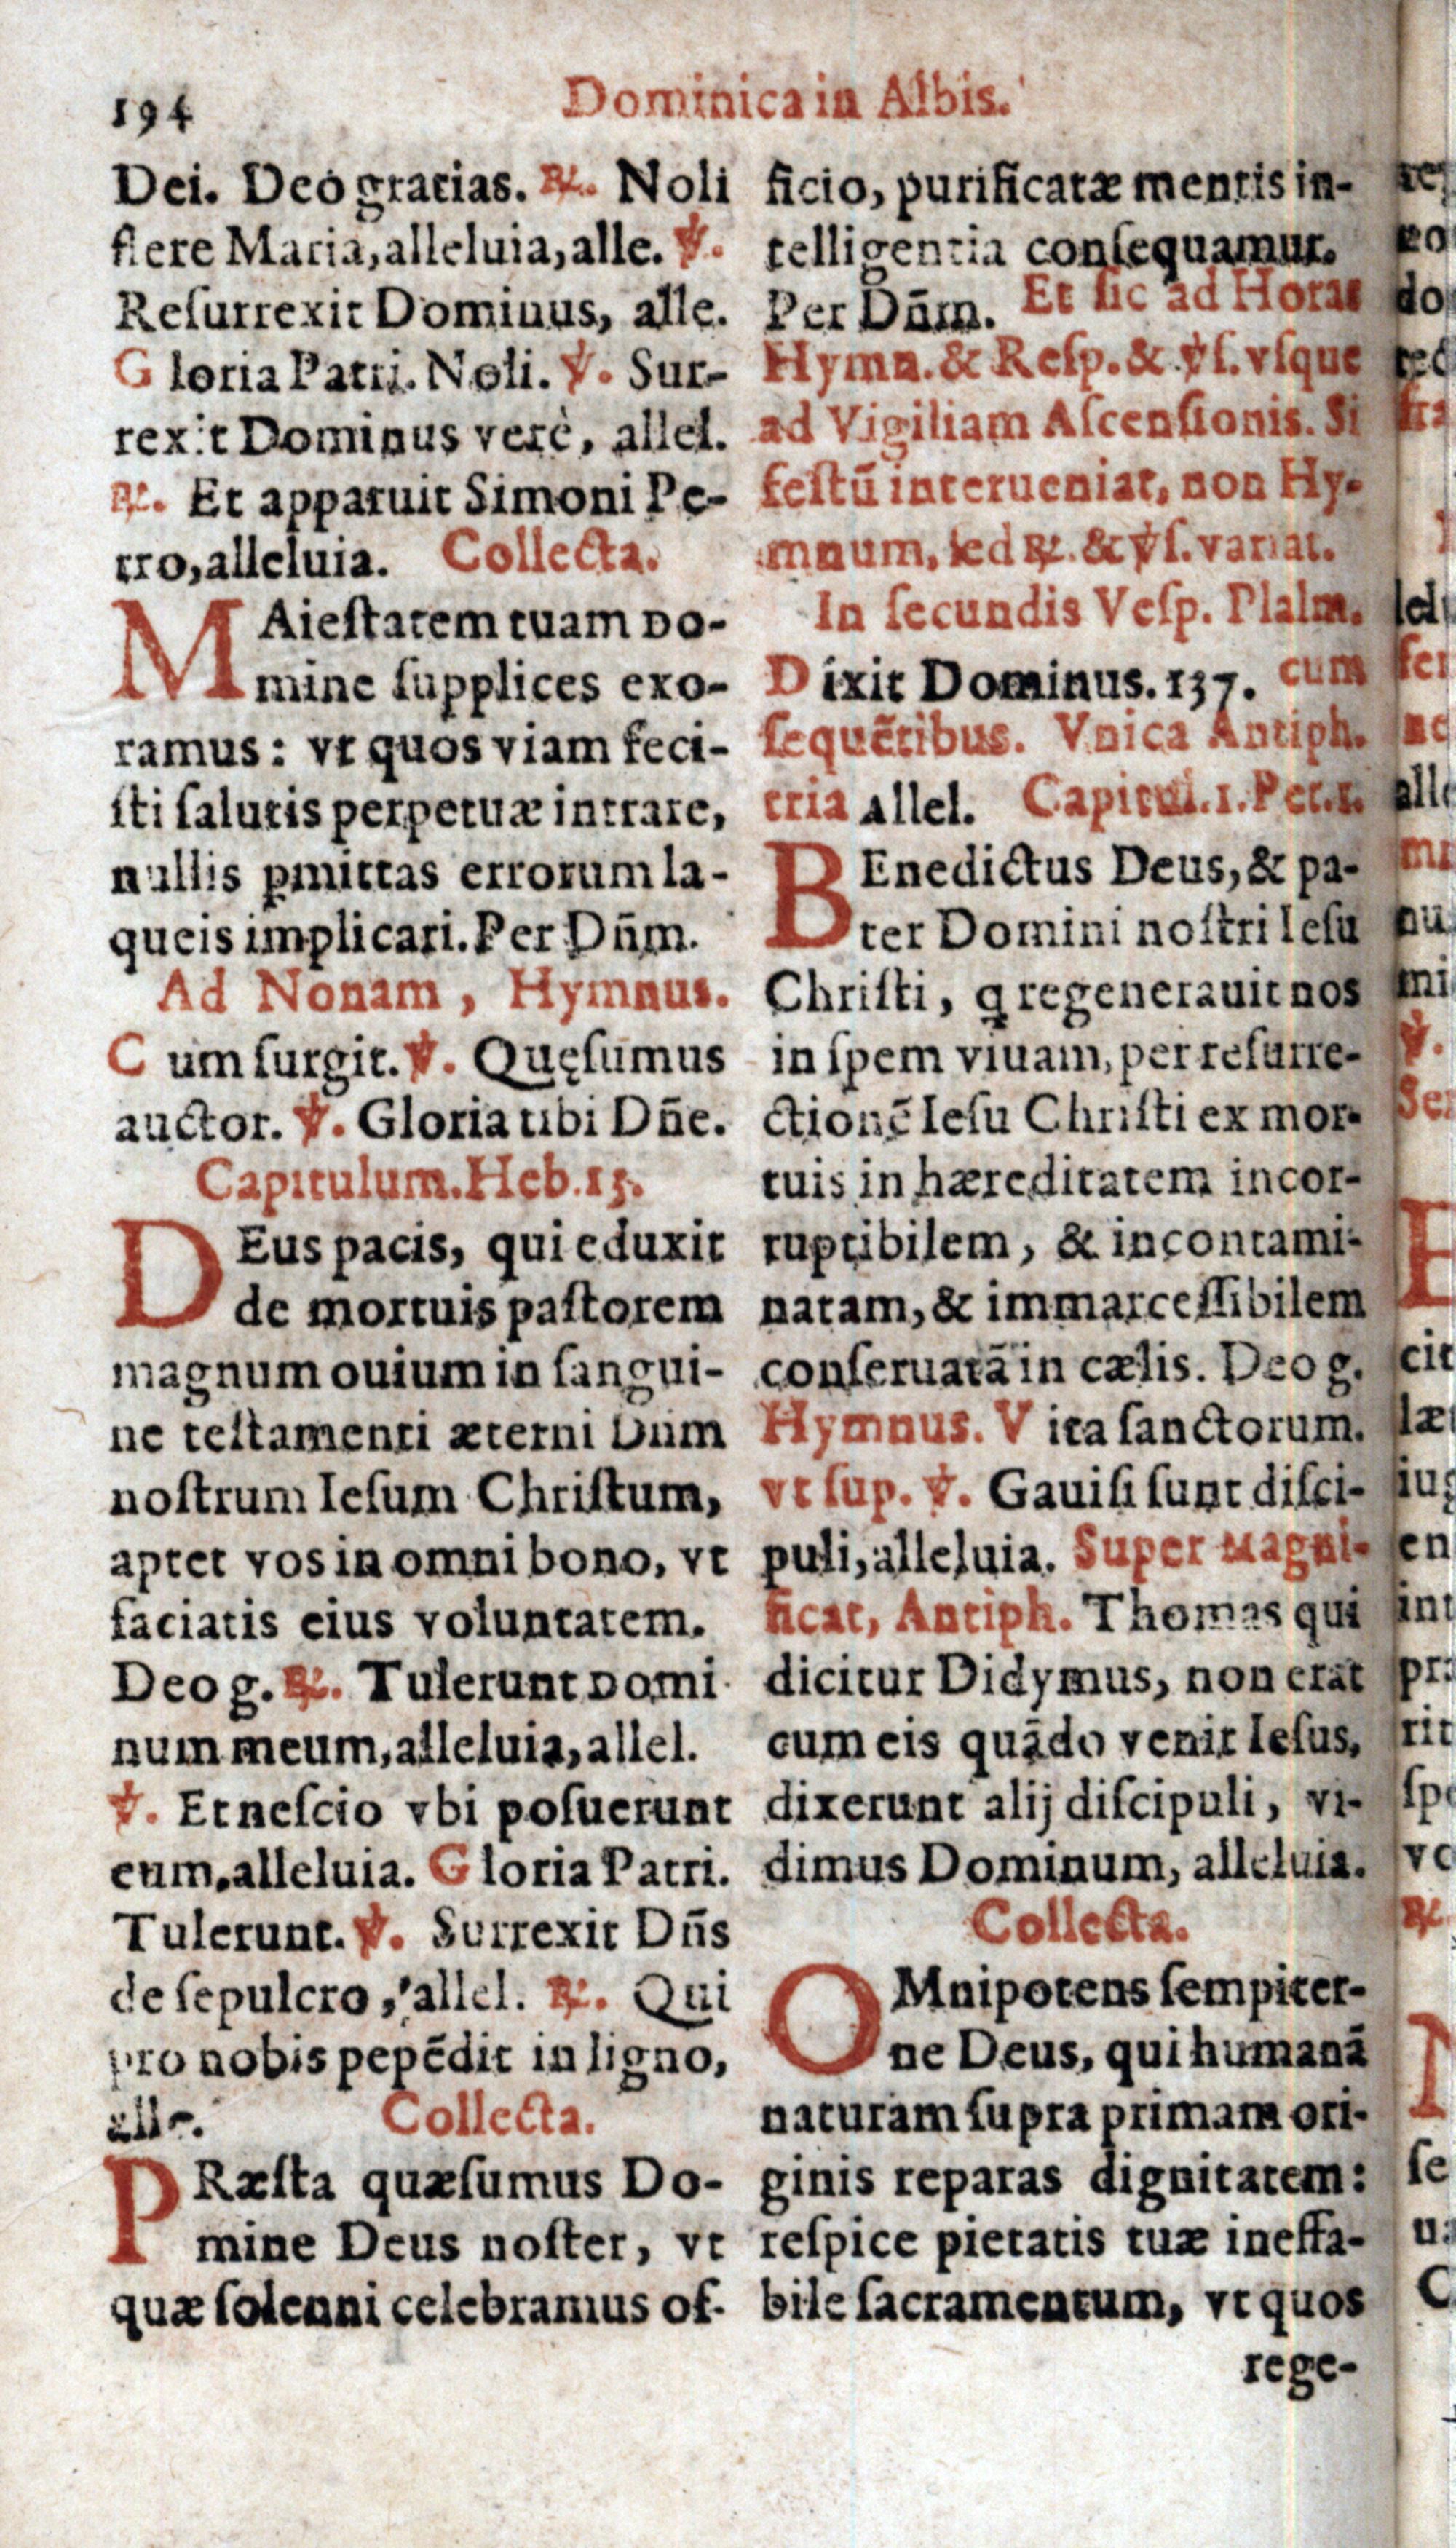 194
Dominica in Albis.
Dei. Deo gratias. ℟. Noli
flere Maria, alleluia, alle. ℣.
Reſurrexit Dominus, alle.
Gloria Patri. Noli. ℣. Sur-
rexit Dominus verè, allel.
℟. Et apparuit Simoni Pe-
tro, alleluia. Collecta.
MAieſtatem tuam Do-
mine ſupplices exo-
ramus: vt quos viam feci-
ſti ſalutis perpetuæ intrare,
nullis ꝑmittas errorum la-
queis implicari. Per Dñm.
Ad Nonam, Hymnus.
Cum ſurgit. ℣. Quęſumus
auctor. ℣. Gloria tibi Dñe.
Capitulum. Heb. 13.
DEus pacis, qui eduxit
de mortuis paſtorem
magnum ouium in ſangui-
ne teſtamenti æterni Dñm
noſtrum Ieſum Chriſtum,
aptet vos in omni bono, vt
faciatis eius voluntatem.
Deo g. ℟. Tulerunt Domi
num meum, alleluia, allel.
℣. Et neſcio vbi poſuerunt
eum, alleluia. Gloria Patri.
Tulerunt. ℣. Surrexit Dñs
de ſepulcro, allel. ℟. Qui
pro nobis pepẽdit in ligno,
alle. Collecta.
PRæſta quæſumus Do-
mine Deus noſter, vt
quæ ſolenni celebramus of-
ficio, purificatæ mentis in-
telligentia conſequamur.
Per Dñm. Et ſic ad Horas
Hymn. & Reſp. & ℣ſ. vſque
ad Vigiliam Aſcenſionis. Si
feſtũ interueniat, non Hy-
mnum, ſed ℟. & ℣ſ. variat.
In ſecundis Veſp. Pſalm.
Dixit Dominus. 137. cum
ſequẽtibus. Vnica Antiph.
tria Allel. Capitul. 1. Pet. 1.
BEnedictus Deus, & pa-
ter Domini noſtri Ieſu
Chriſti, q regenerauit nos
in ſpem viuam, per reſurre-
ctionẽ Ieſu Chriſti ex mor-
tuis in hæreditatem incor-
ruptibilem, & incontami-
natam, & immarceſſibilem
conſeruatã in cælis. Deo g.
Hymnus. Vita ſanctorum.
vt ſup. ℣. Gauiſi ſunt diſci-
puli, alleluia. Super Magni-
ficat, Antiph. Thomas qui
dicitur Didymus, non erat
cum eis quãdo venit Ieſus,
dixerunt alij diſcipuli, vi-
dimus Dominum, alleluia.
Collecta.
OMnipotens ſempiter-
ne Deus, qui humanã
naturam ſupra primam ori-
ginis reparas dignitatem:
reſpice pietatis tuæ ineffa-
bile ſacramentum, vt quos
rege-